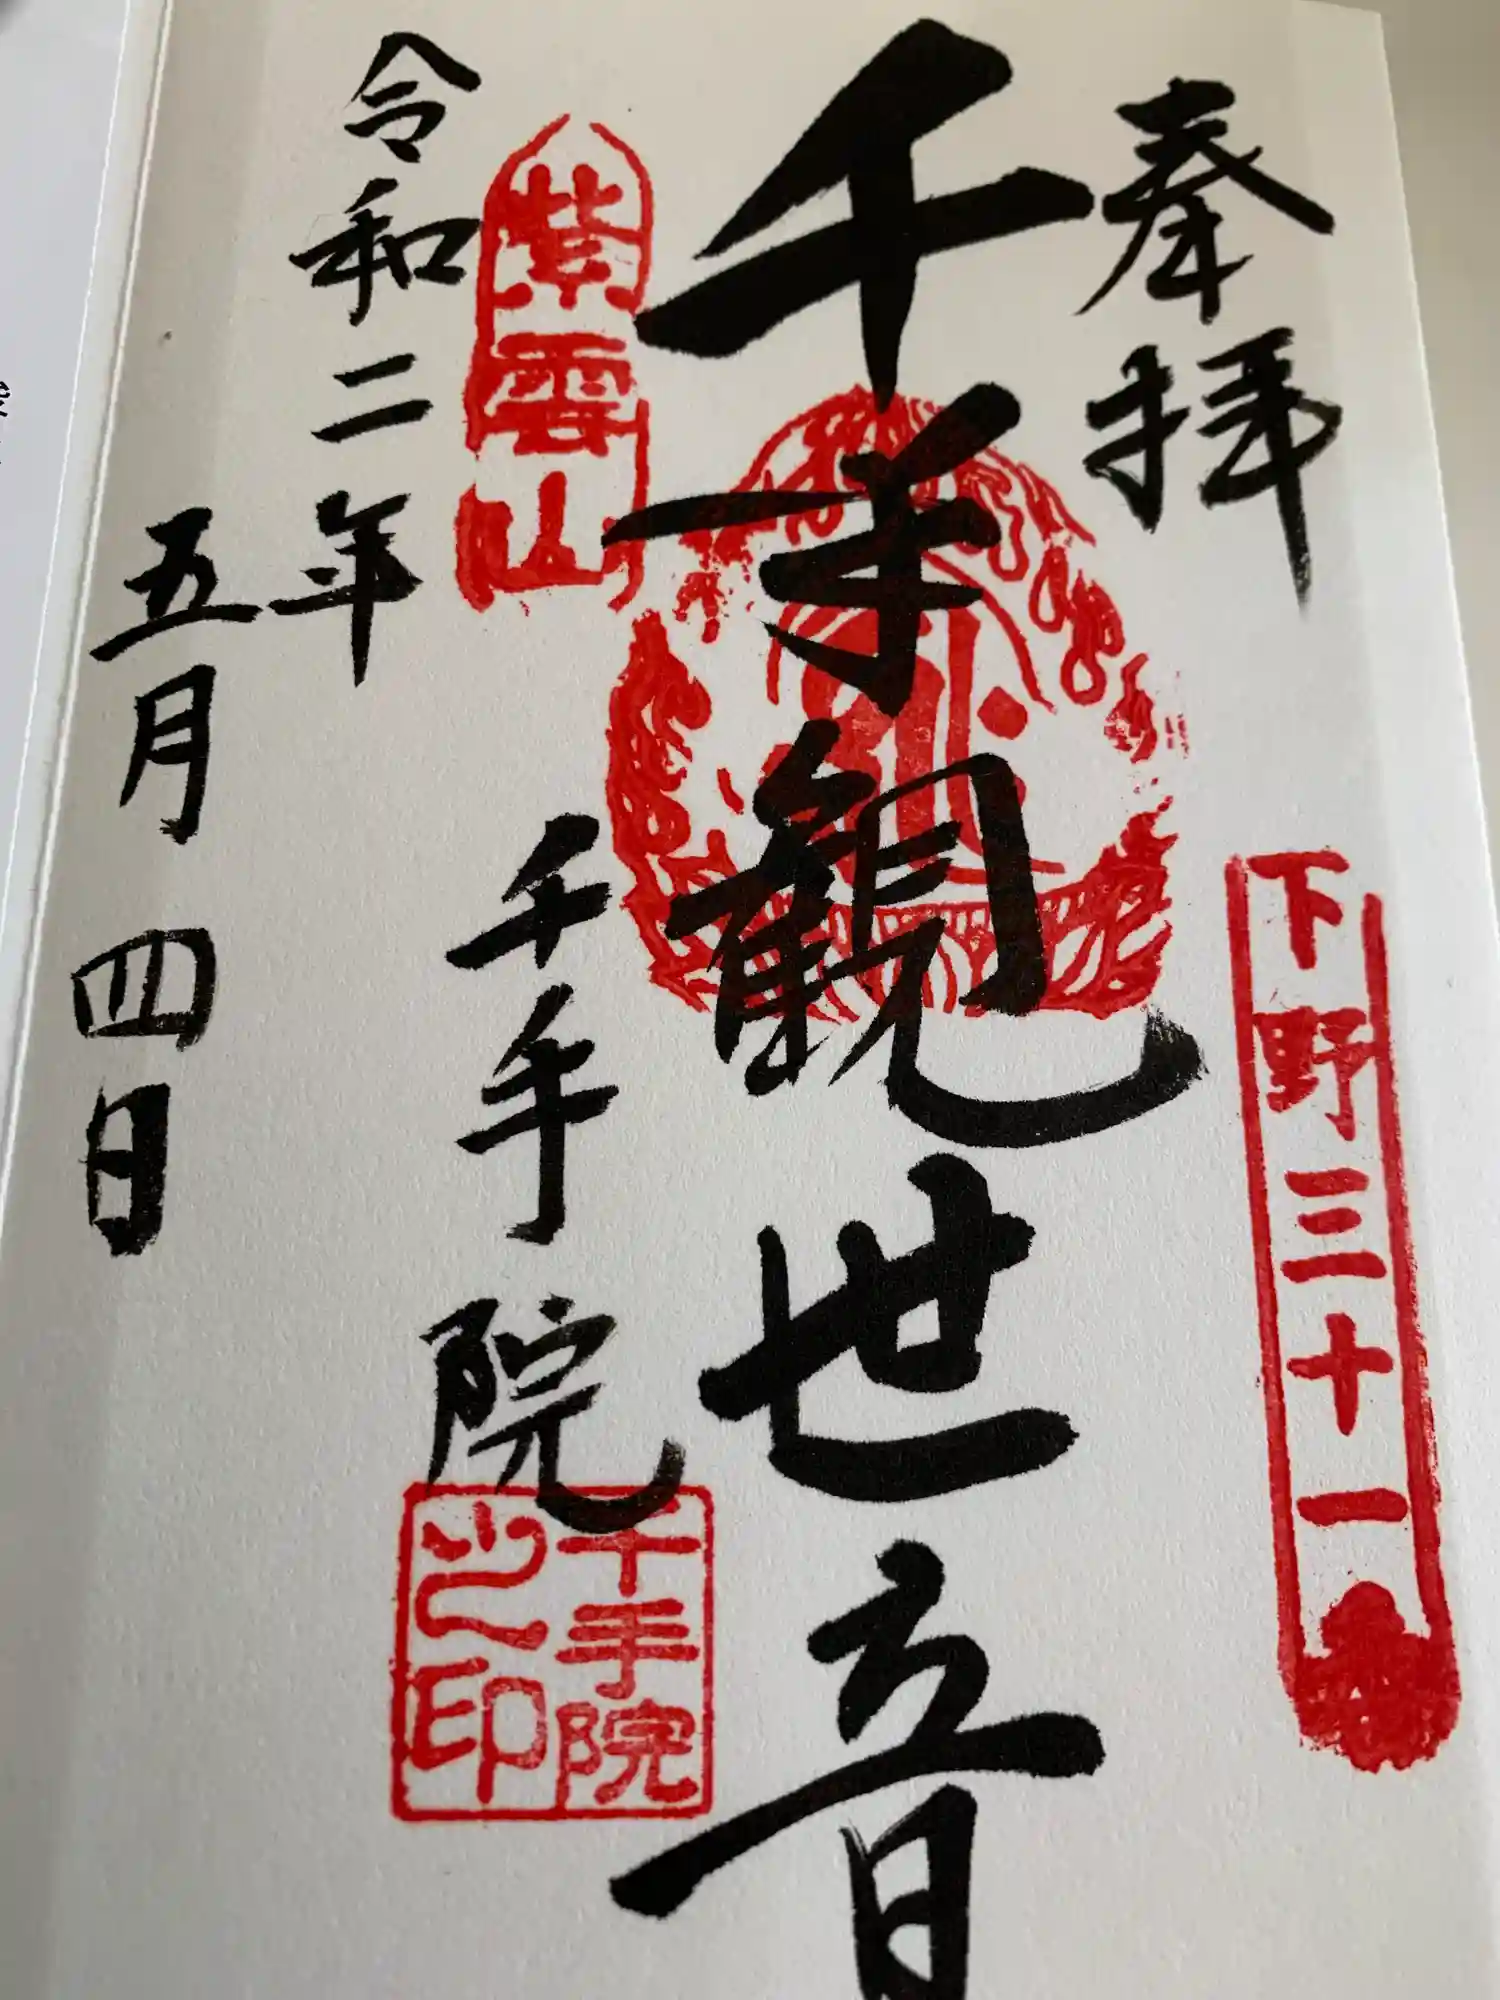 奉拝
下野三十一番
千手観世音
紫雲山
千手院
千手院
之印
令和二年
五月四日